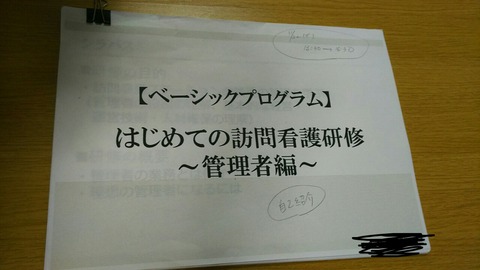 【ベーシックプログラム】
はじめての訪問看護研修
～管理者編～
自己紹介